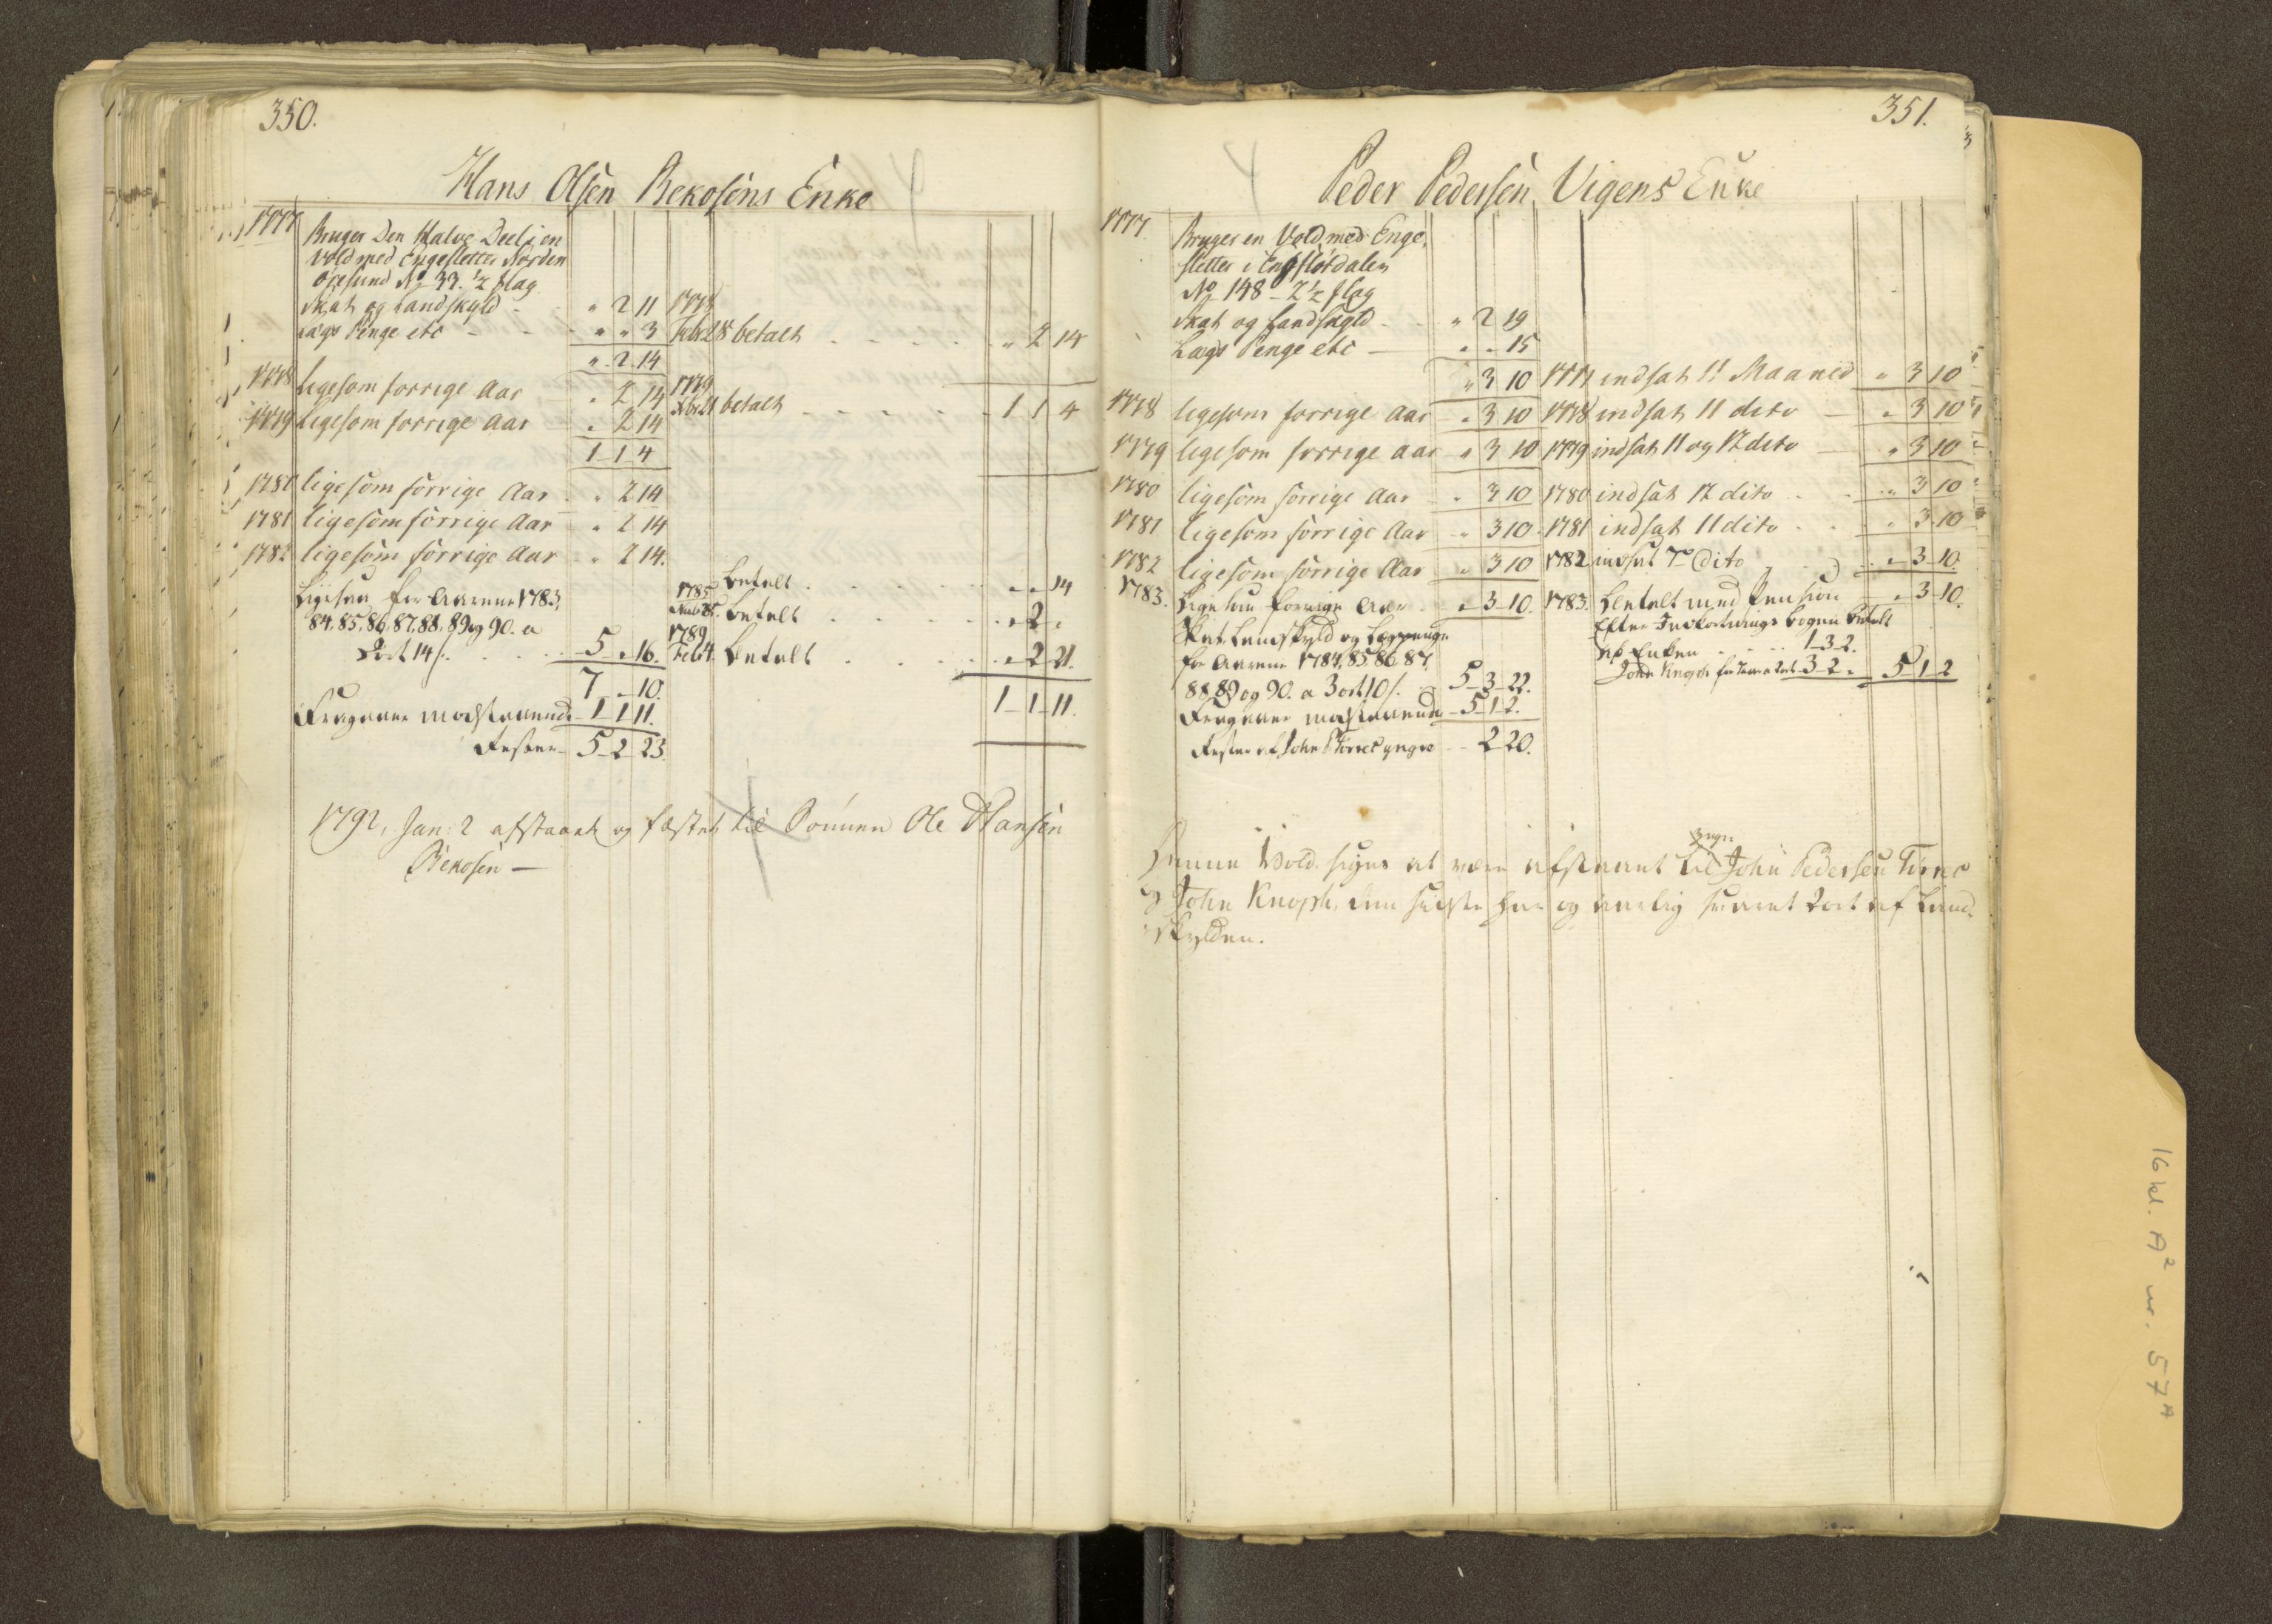 350.
Hans Olsen Bekosens Enke
1777 Bruger Den Halve Deel i en
vold med Engesletter Norden
Øresund No 33. ½ slag
Skat og Landskyld - " 2 11
Lægs Penge etc - - " " 3
" 2 14
1778 Febr 28 betalt - - - - - " 2 14
1778 ligesom forrige Aar " 2 14
1779 ligesom forrige Aar " 2 14
1 1 4
1779 betalt - - - - - 1 1 4
1780 ligesom forrige Aar " 2 14
1781 ligesom forrige Aar " 2 14
1782 ligesom forrige Aar " 2 14.
Ligesaa for Aarene 1783,
84, 85, 86, 87, 88, 89 og 90. a
2 ort 14 s. 5 " 16.
7 " 10.
Fragaaer modstaaende 1 1 11.
Rester 5 2 23.
betalt . . . . " " 14
1785 betalt . . . . " 2 "
1789 Febr 4. betalt . . . " 2 21.
1 1 11.
1792, Jan: 2 afstaaet og fæstet til Sønnen Ole Hansen
Bekosen —
351.
Peder Pedersen Vigens Enke
1777 Bruger en Vold med Enge
sletter i
No 148 - 2 ½ slag
Skat og Landskyld - " 2 19
Lægs Penge etc — " " 15
" 3 10 1777 indsat 11 Maaned " 3 10
1778 ligesom forrige Aar " 3 10 1778 indsat 11 dito — " 3 10
1779 ligesom forrige aar " 3 10 1779 indsat 11 og 12 dito — " 3 10
1780 ligesom forrige Aar " 3 10 1780 indsat 12 dito . . " 3 10
1781 ligesom forrige Aar " 3 10 1781 indsat 11 dito . . " 3 10
1782 ligesom forrige Aar " 3 10 1782 indsat 7de Dito " 3 10.
1783. Ligesom forrige Aar " 3 10. 1783. betalt med Pension " 3 10.
Skat Landskyld og Lægspenge
for Aarene 1784, 85 86 87,
88, 89 og 90. a 3 ort 10 s. 5 3 22.
Fragaaer modstaaende 5 1 2.
Rester af John Tørres yngre - 2 20.
Efter Indkortnings bogen betalt
af Enken . . . . 1 3 2.
John Knoph 3 2 " 5 1 2
Denne Vold siges at være afstaaet til yngre John Pedersen Tørres
og John Knoph, den sidste har og aarlig svaret 2 ort af Land-
skylden.
16 kl. A² nr. 57ᴬ